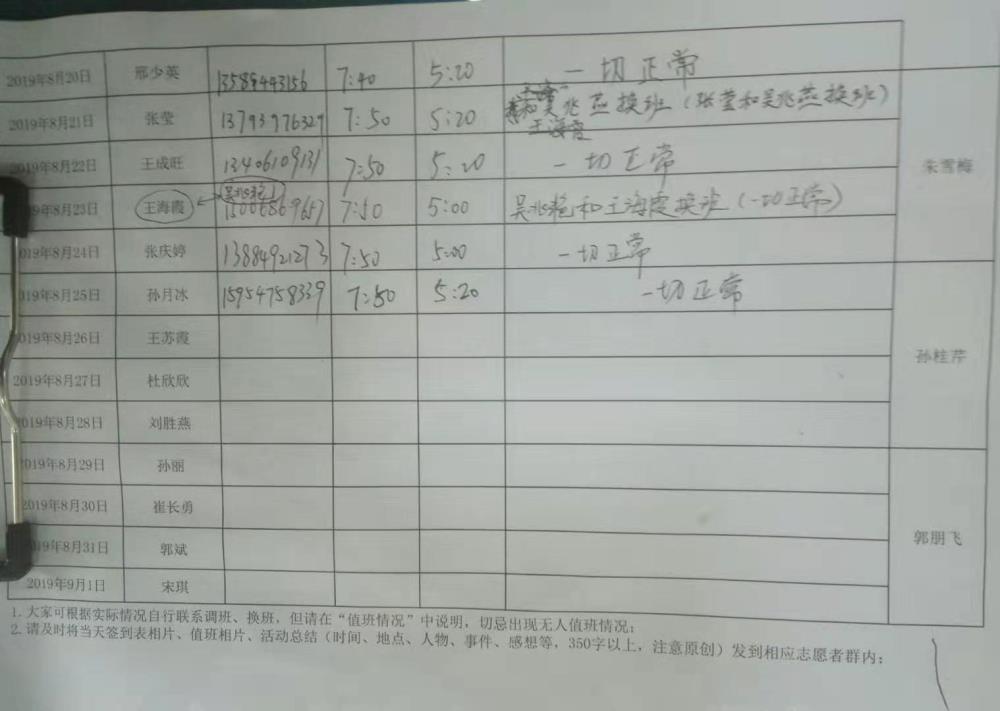 2019年8月20日 邢少英 13589443156 7:40 5:20 一切正常
2019年8月21日 张莹 13793976329 7:50 5:20 和吴兆燕换班（张莹和吴兆燕换班）
王海霞
2019年8月22日 王成旺 13406109131 7:50 5:20 一切正常
朱雪梅
吴兆艳
019年8月23日 王海霞 15006869657 7:50 5:00 吴兆艳和王海霞换班（一切正常）
019年8月24日 张庆婷 13884921273 7:50 5:00 一切正常
019年8月25日 孙月冰 15954758339 7:50 5:20 一切正常
019年8月26日 王苏霞
孙桂芹
019年8月27日 杜欣欣
019年8月28日 刘胜燕
2019年8月29日 孙丽
2019年8月30日 崔长勇
019年8月31日 郭斌
郭朋飞
2019年9月1日 宋琪
1. 大家可根据实际情况自行联系调班、换班，但请在“值班情况”中说明，切忌出现无人值班情况；
2. 请及时将当天签到表相片、值班相片、活动总结（时间、地点、人物、事件、感想等，350字以上，注意原创）发到相应志愿者群内；